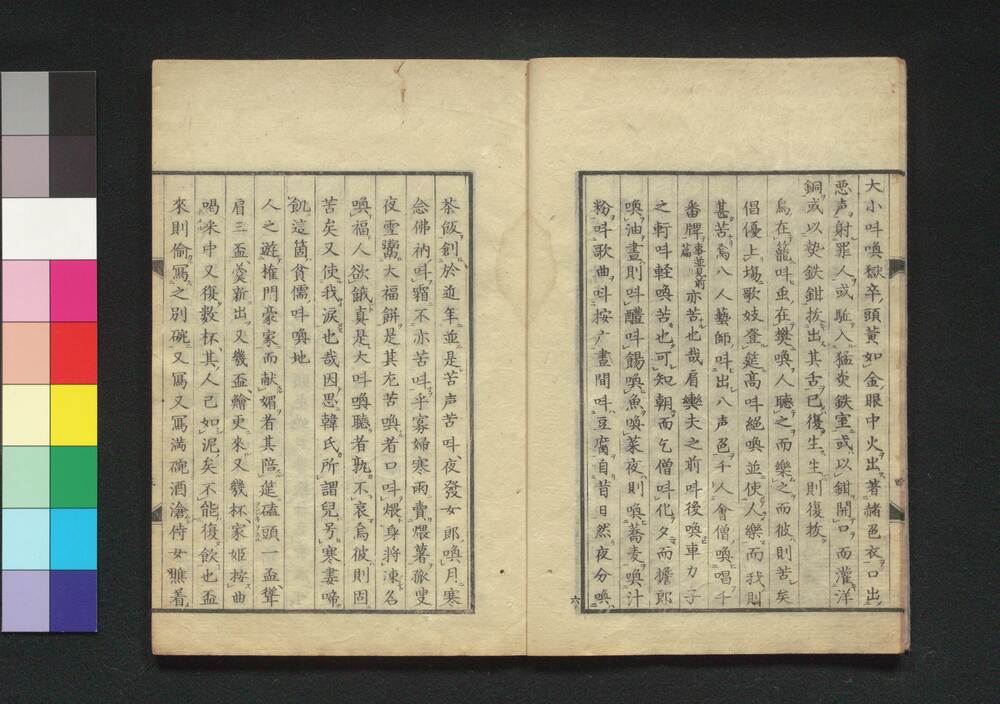 大小叫喚獄卒頭黄如金眼中火出著赭色衣口出
悪声射罪人或駈入猛炎鉄室或以鉗開口而灌洋
銅或以熱鉄鉗抜出其舌已復生生則復抜
鳥在籠叫虫在樊喚人聴之而樂之而彼則苦矣
倡優上場歌妓登筵高叫絶喚並使人樂而我則
甚苦焉八人藝師叫出八声色千人會僧喚唱千
番牌事並見前篇亦苦也哉肩轝夫之前叫後喚車力子
之軒叫軽喚苦也可知朝而乞僧叫化夕而擔郎
喚油晝則叫醴叫餳喚魚喚菜夜則喚蕎麦喚汁
粉叫歌曲叫按广晝間叫豆腐自昔日然夜分喚
六
茶飯創於近年並是苦声苦叫夜發女郎喚月寒
念佛衲叫霜不亦苦叫乎寡婦寒雨賣煨薯旅叟
夜雪鬻大福餅是其尤苦喚者口叫煨身將凍名
喚福人欲餓真是大叫喚聴者孰不哀焉彼則固
苦矣又使我涙也哉因思韓氏所謂兒号寒妻啼
飢這箇貧儒叫喚地
人之遊権門豪家而献媚者其陪筵磕頭一盃聳
肩三盃羮新出又幾盃鱠更來又幾杯家姫按曲
喝采中又復数杯其人已如泥矣不能復飲也盃
來則偷寫之別碗又寫又寫満碗酒滄侍女瞧着